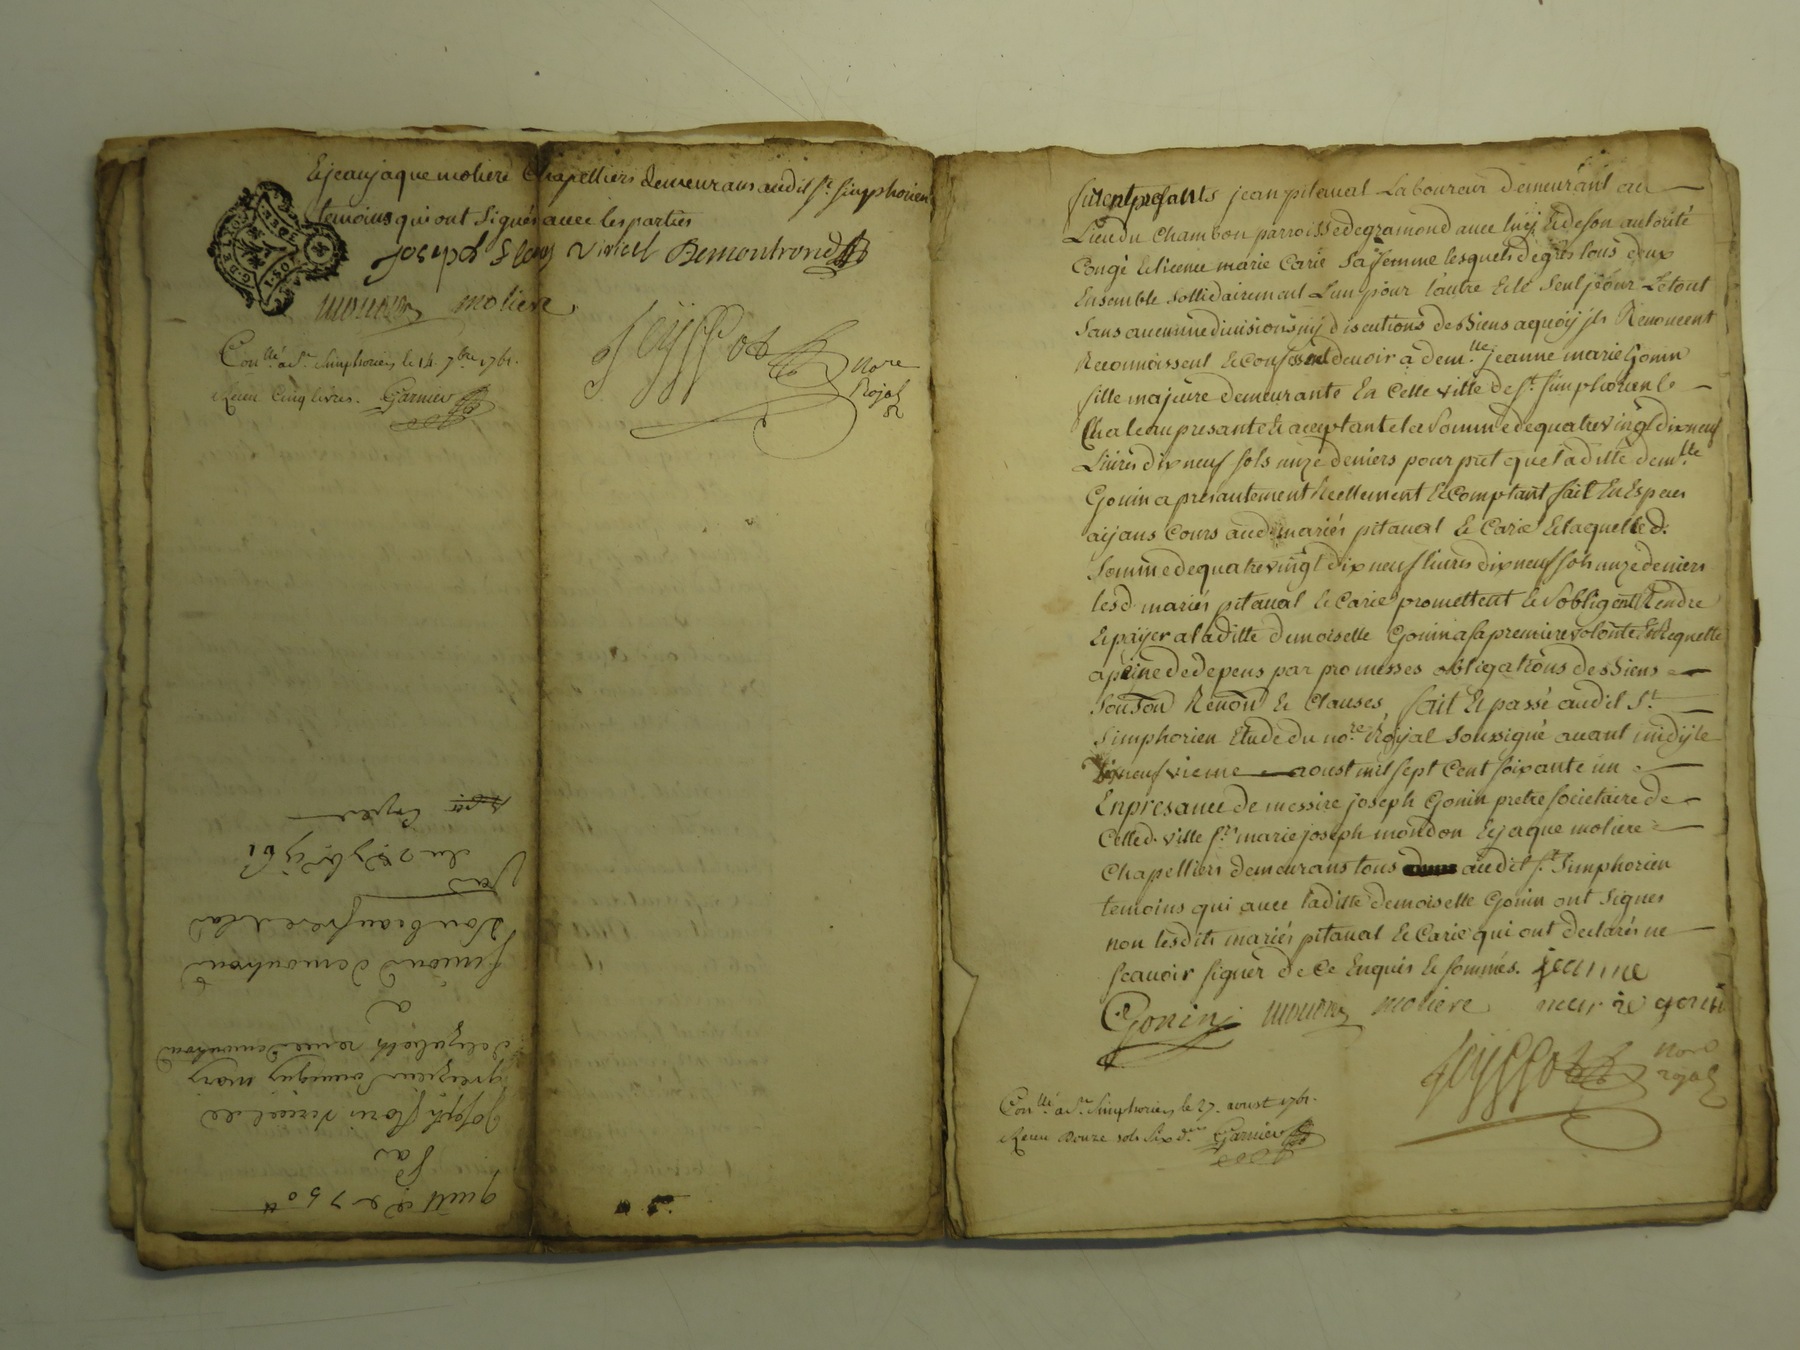 Et jean jaque moliere Chapelliers demeurans audit st. simphorien
temoins qui ont signés avec les parties
joseph flory viricel Demontrond
mondon moliere
Seyssot nore Rojal
Conllé a St. Simphorien, le 14. 7bre 1761.
Receu Cinq livres. Garnier
quitt ce de 750 tt
par
Joseph floris viricel et
a
Simeon demontrond
son beau frere et la
Du 2 7bre 1761
Expedié
furent presants jean pitaval Laboureur demeurant au
Lieu du Chambon parroisse de gramond avec luy et de son autorité
Congé Et licence marie Carié Sa femme lesquels de grés tous deux
Ensemble sollidairement L'un pour l'autre Et le seul pour Le tout
sans aucunne divisions ny discutions de Biens a quoy jls Renoncent
Reconnoissent et confessent devoir a demlle jeanne marie Gonin
fille majeure demeurante En cette ville de st. simphorien le
Chateau presante Et acceptante la somme de quatre vingt dix neuf
Livres dix neuf sols unze deniers pour prêt que laditte demlle
Gonin a presantement Reellement Et Comptant fait En Especes
aÿans Cours aud. mariés pitaval Et Carié Et laquelle d.
somme de quatre vingt dix neuf livres dix neuf sols unze deniers
lesd. mariés pitaval Et Carié promettent Et s'obligent Rendre
Et païjer a laditte demoiselle Gonin a sa premiere volonté Et Requette
a peine de depens par promesses obligations de Biens
Renon Et Clauses, fait Et passé audit St.
Simphorien Etude du nore. Royal soussigné avant midy le
vieme aoust mil sept Cent soixante un
En presance de messire joseph Gonin pretre societaire de
Cette d. ville sr. marie joseph mondon Et jaque moliere
Chapelliers demeurans tous audit st. Simphorien
temoins qui avec laditte demoiselle Gonin ont signes
non lesdits mariés pitaval Et Carié qui ont declarés ne
scavoir signer de Ce Enquis Et sommés. jeanne
Gonin mondon moliere marie gonin
Seyssot nore royal
Conllé a St. Simphorien, le 27. aoust 1761.
Receu Douze sols Six drs. Garnier